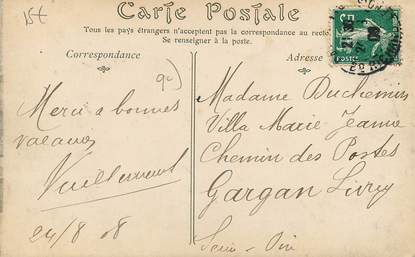 15€
Carte Postale
Tous les pays étrangers n'acceptent pas la correspondance au recto.
Se renseigner à la poste.
Correspondance
Adresse
Merci a bonnes
vacances
Vuillermet
24/8 08
Madame Duchemin
Villa Marie Jeanne
Chemin des Postes
Gargan Livry
Seine-Oise